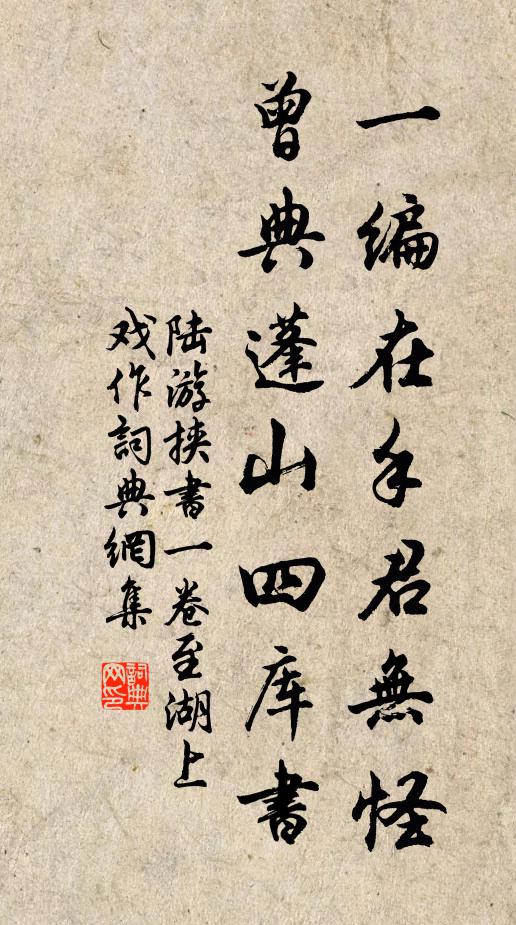 一编在手君無怪
曾典蓬山四库書
陆游挟書一卷至湖上
戏作詞典網集
詞典网印